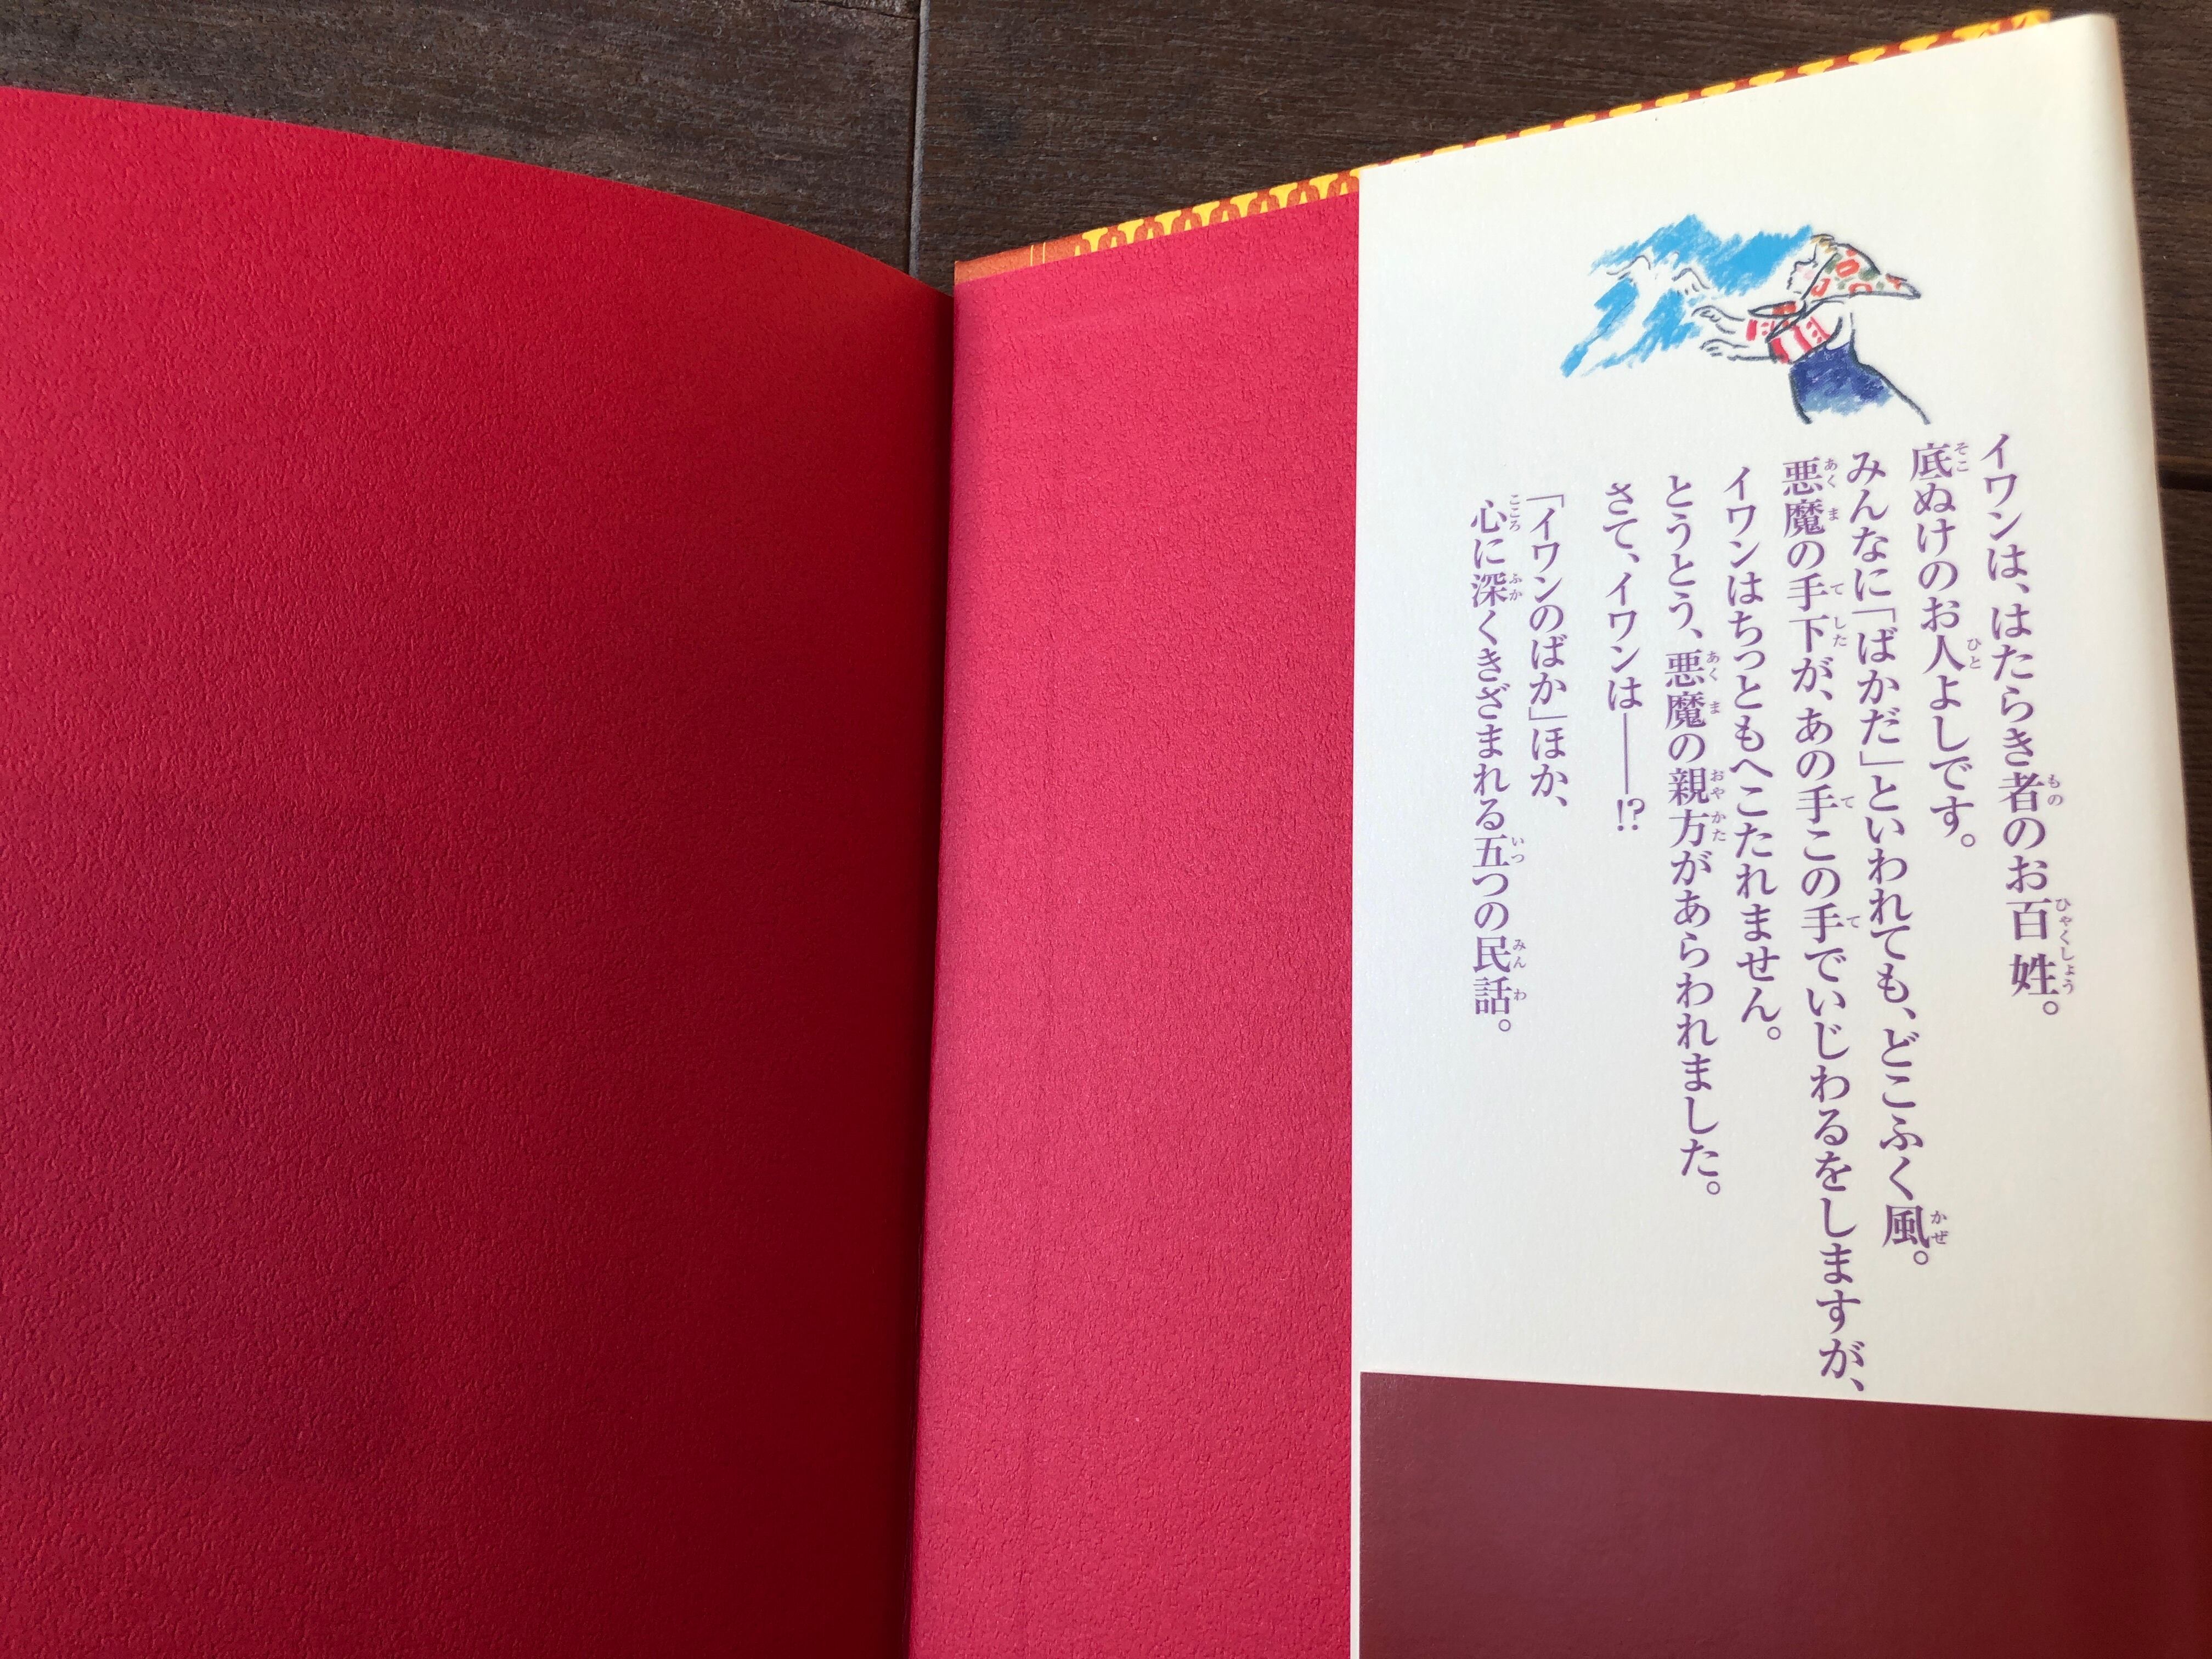 イワンは、はたらき者のお百姓。
底ぬけのお人よしです。
みんなに「ばかだ」といわれても、どこふく風。
悪魔の手下が、あの手この手でいじわるをしますが、
イワンはちっともへこたれません。
とうとう、悪魔の親方があらわれました。
さて、イワンは――!?
「イワンのばか」ほか、
心に深くきざまれる五つの民話。